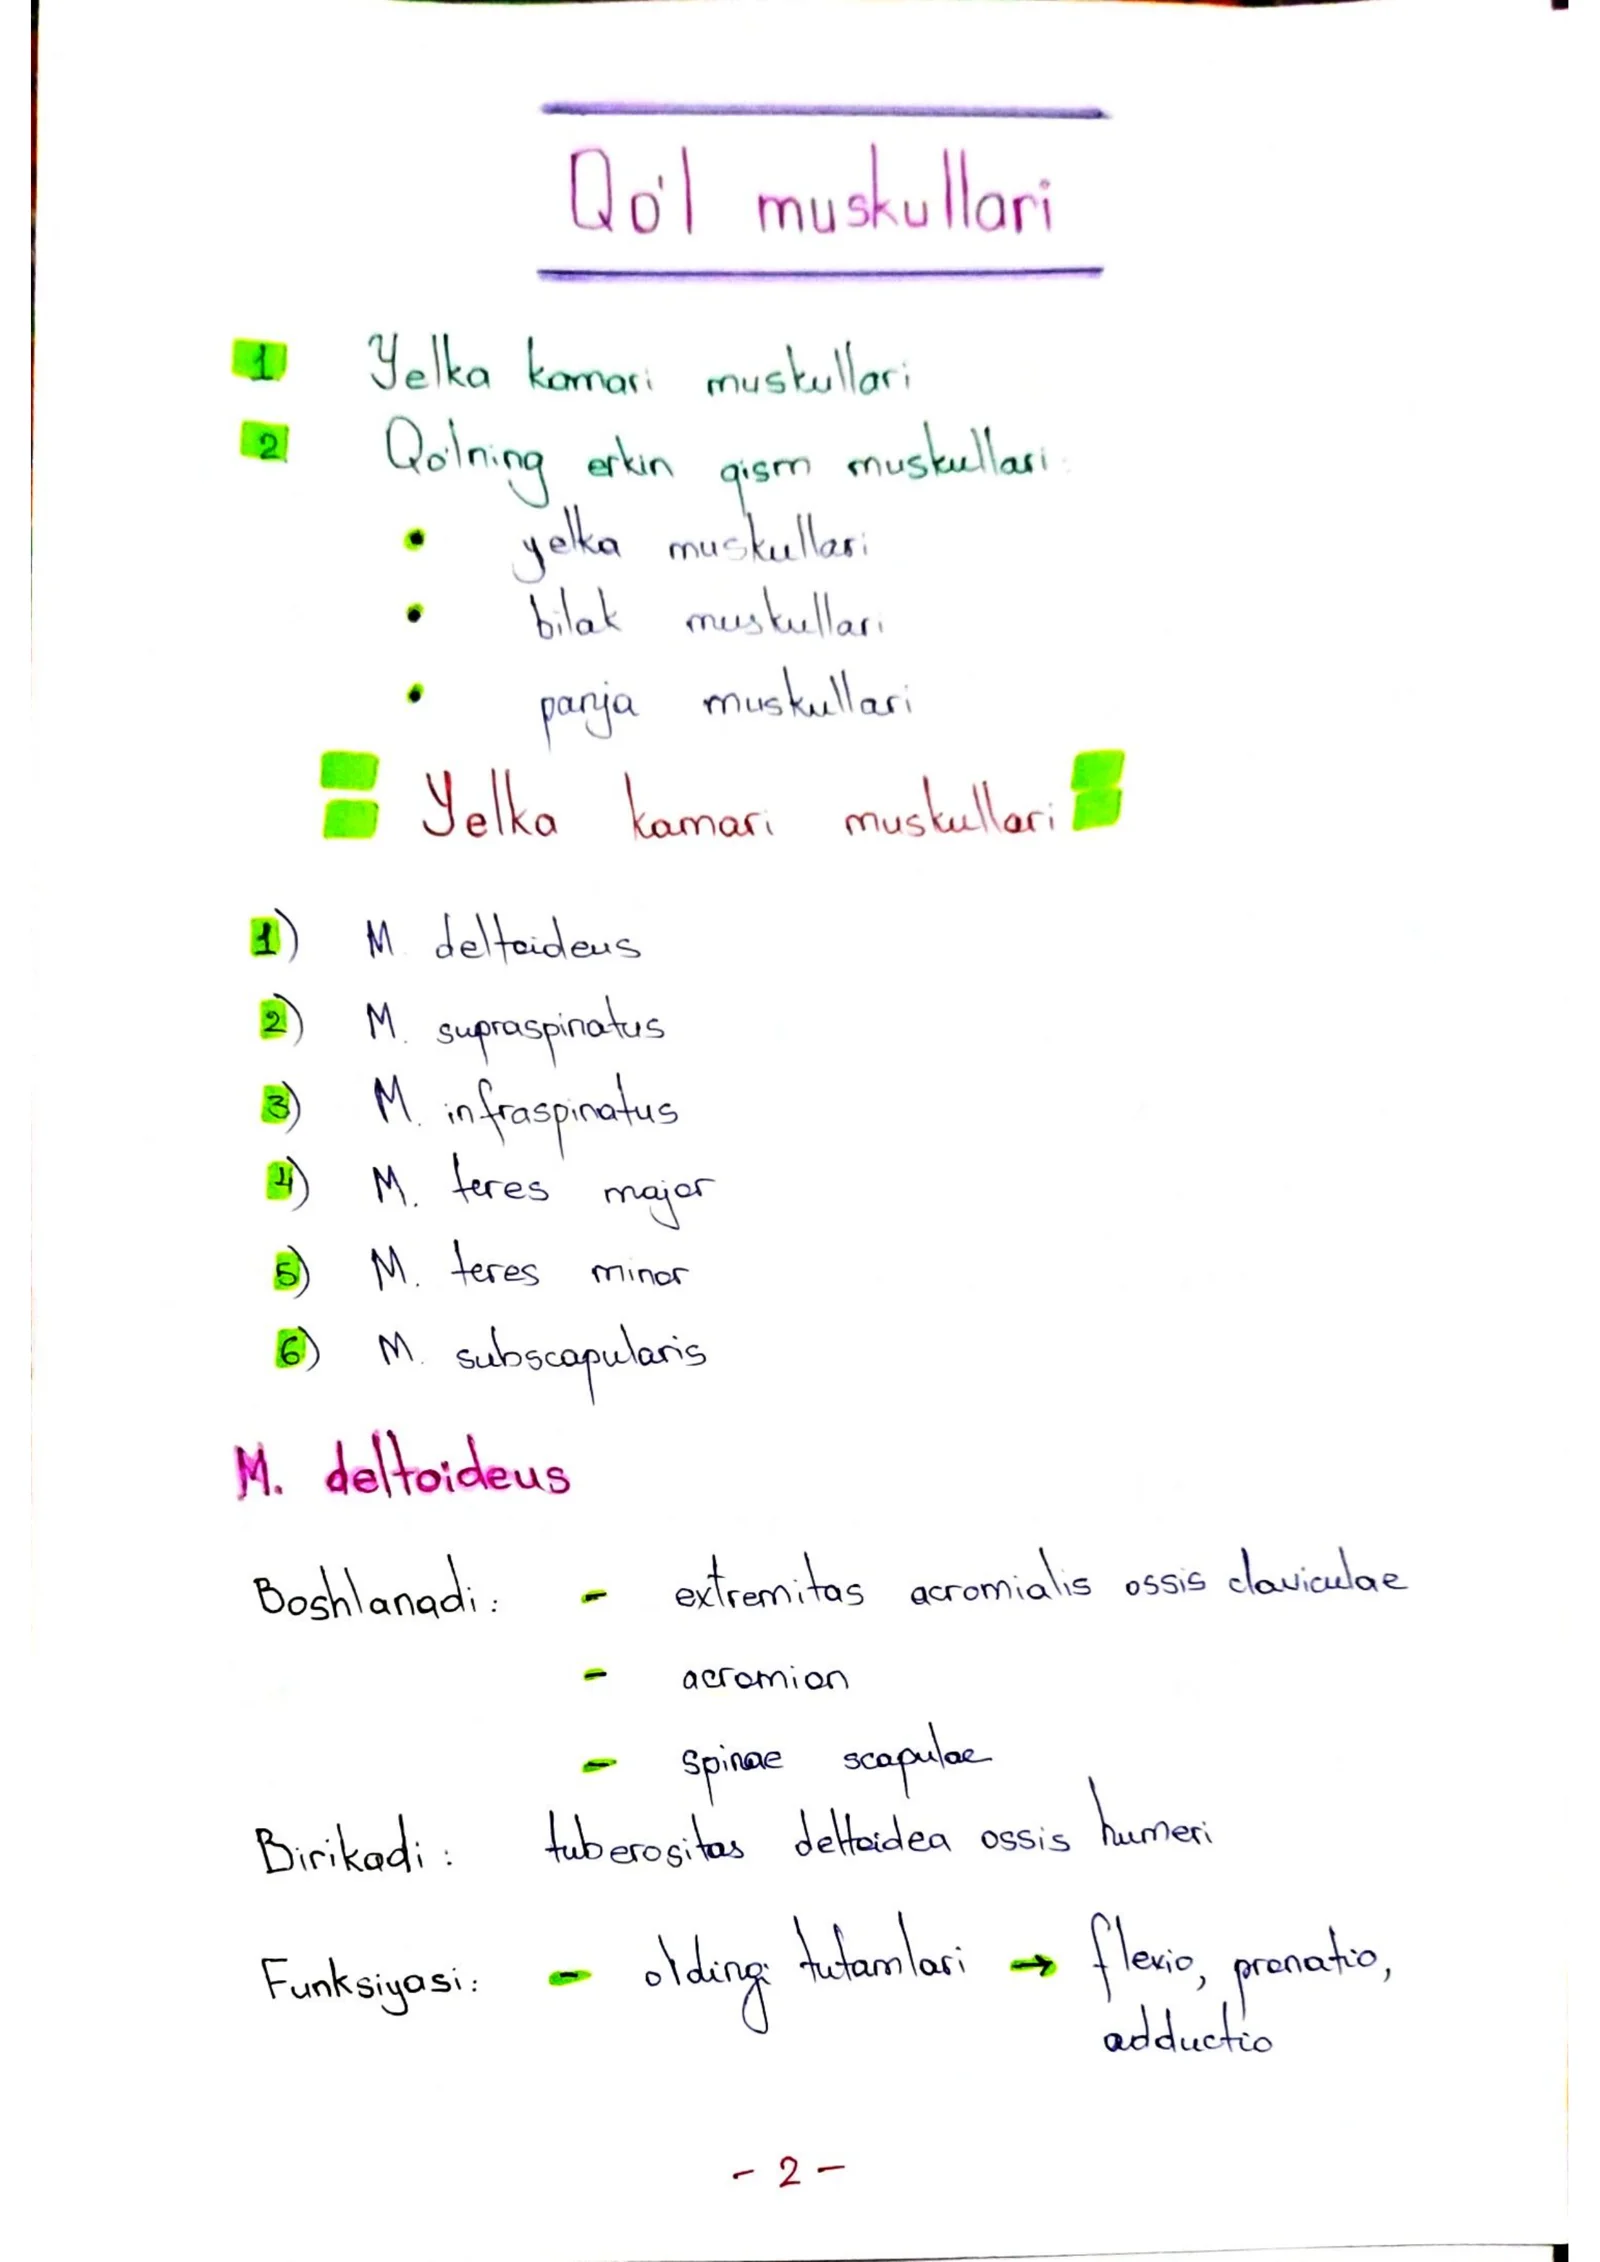 Qo'l muskullari
1 Yelka kamari muskullari
2 Qo'lning erkin qism muskullari:
• yelka muskullari
• bilak muskullari
• panja muskullari
Yelka kamari muskullari
1) M. deltoideus
2) M. supraspinatus
3) M. infraspinatus
4) M. teres major
5) M. teres minor
6) M. subscapularis
M. deltoideus
Boshlanadi: - extremitas acromialis ossis claviculae
- acromion
- spinae scapulae
Birikadi: tuberositas deltoidea ossis humeri
Funksiyasi: - oldingi tutamlari → flexio, pronatio,
adductio
- 2 -